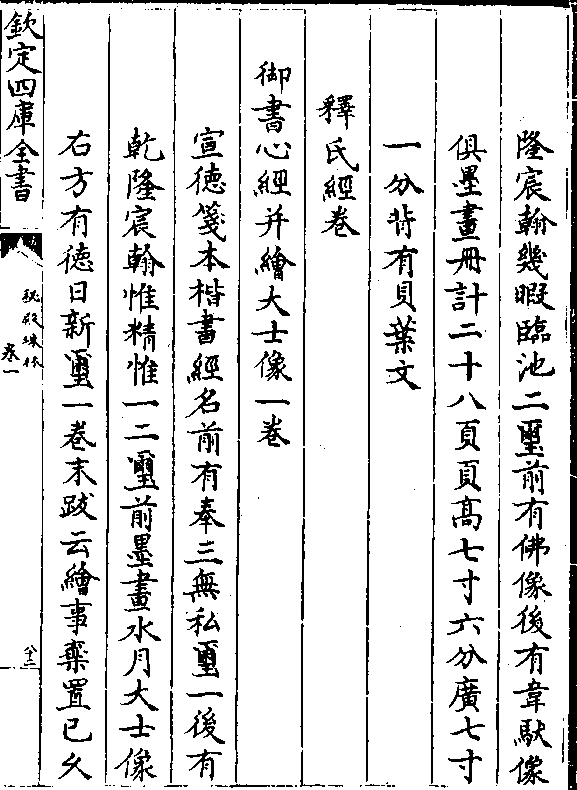 隆宸翰幾暇臨池二璽前有佛像後有韋馱像
俱墨畫冊計二十八頁頁高七寸六分廣七寸
一分背有貝葉文
釋氏經卷
御書心經并繪大士像一卷
宣德箋本楷書經名前有奉三無私璽一後有
乾隆宸翰惟精惟一二璽前墨畫水月大士像
右方有德日新璽一卷末跋云繪事棄置已久
欽定四庫全書
秘殿珠林
卷一